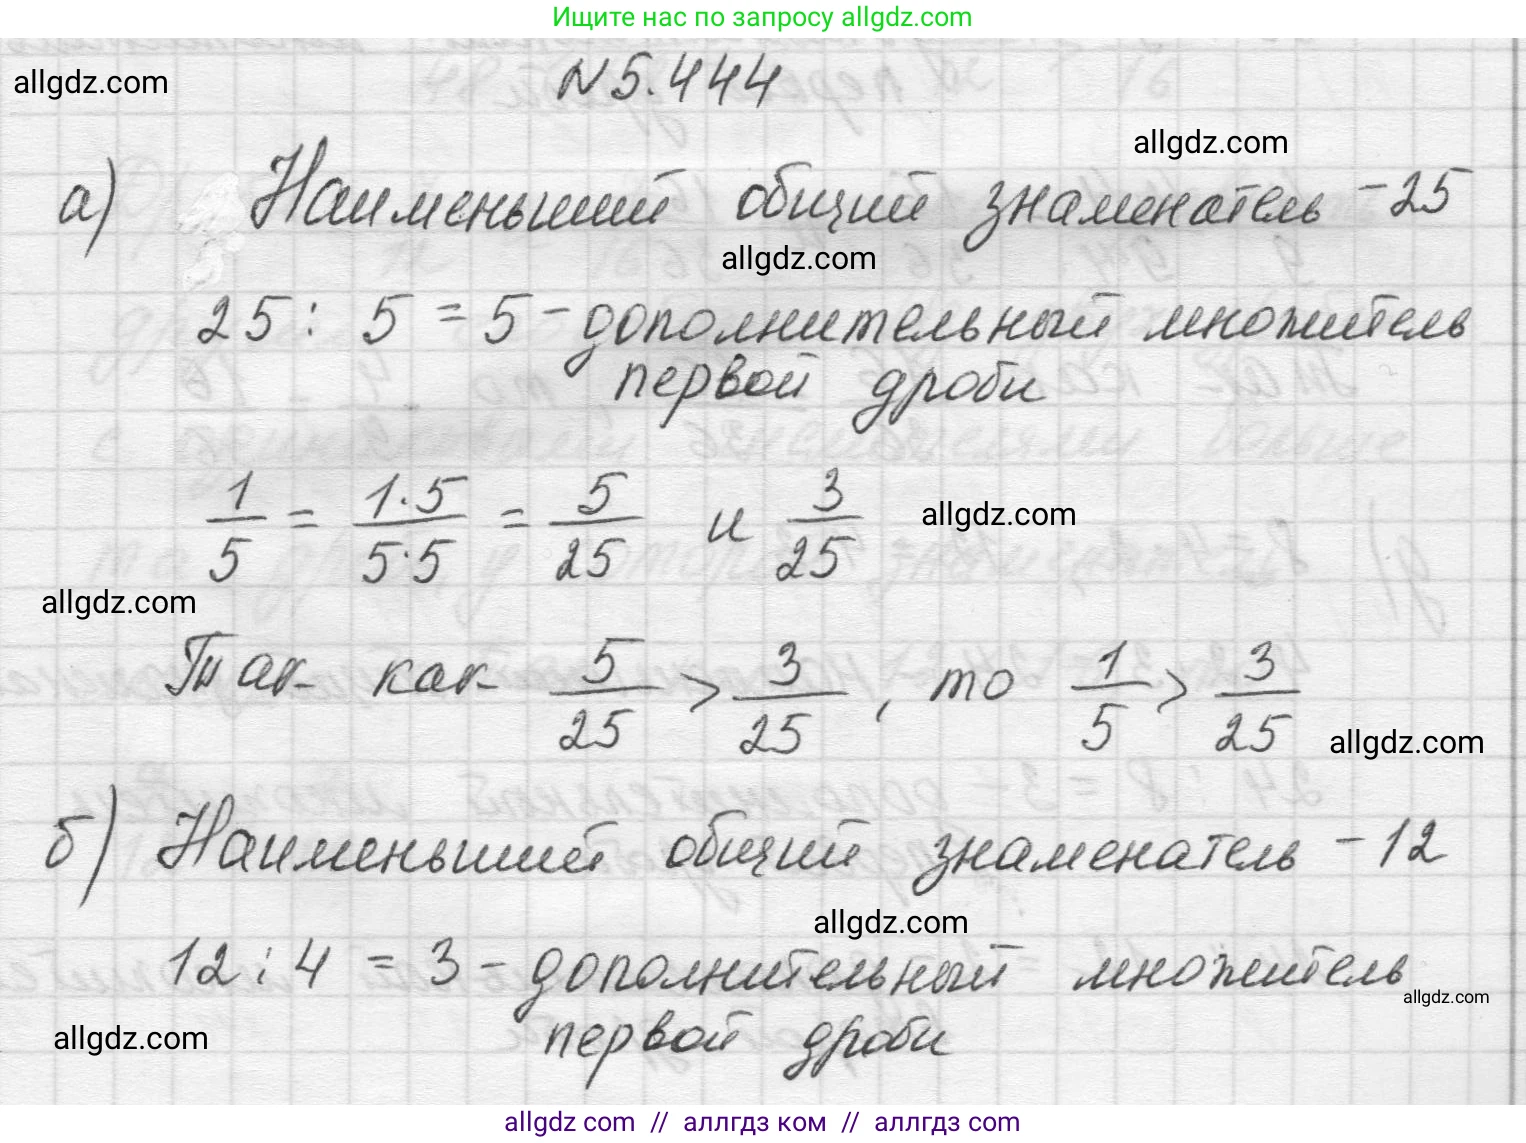 Ищите нас по запросу allgdz.com
allgdz.com
N 5.444
allgdz.com
а) Наименьший общий знаменатель - 25
allgdz.com
25 : 5 = 5 - дополнительный множитель
первой дроби
1/5 = 1·5/5·5 = 5/25 и 3/25
allgdz.com
allgdz.com
Так как 5/25 > 3/25, то 1/5 > 3/25
allgdz.com
б) Наименьший общий знаменатель - 12
allgdz.com
12 : 4 = 3 - дополнительный множитель
allgdz.com
первой дроби
allgdz.com
allgdz com // аллгдз ком // аллгдз com